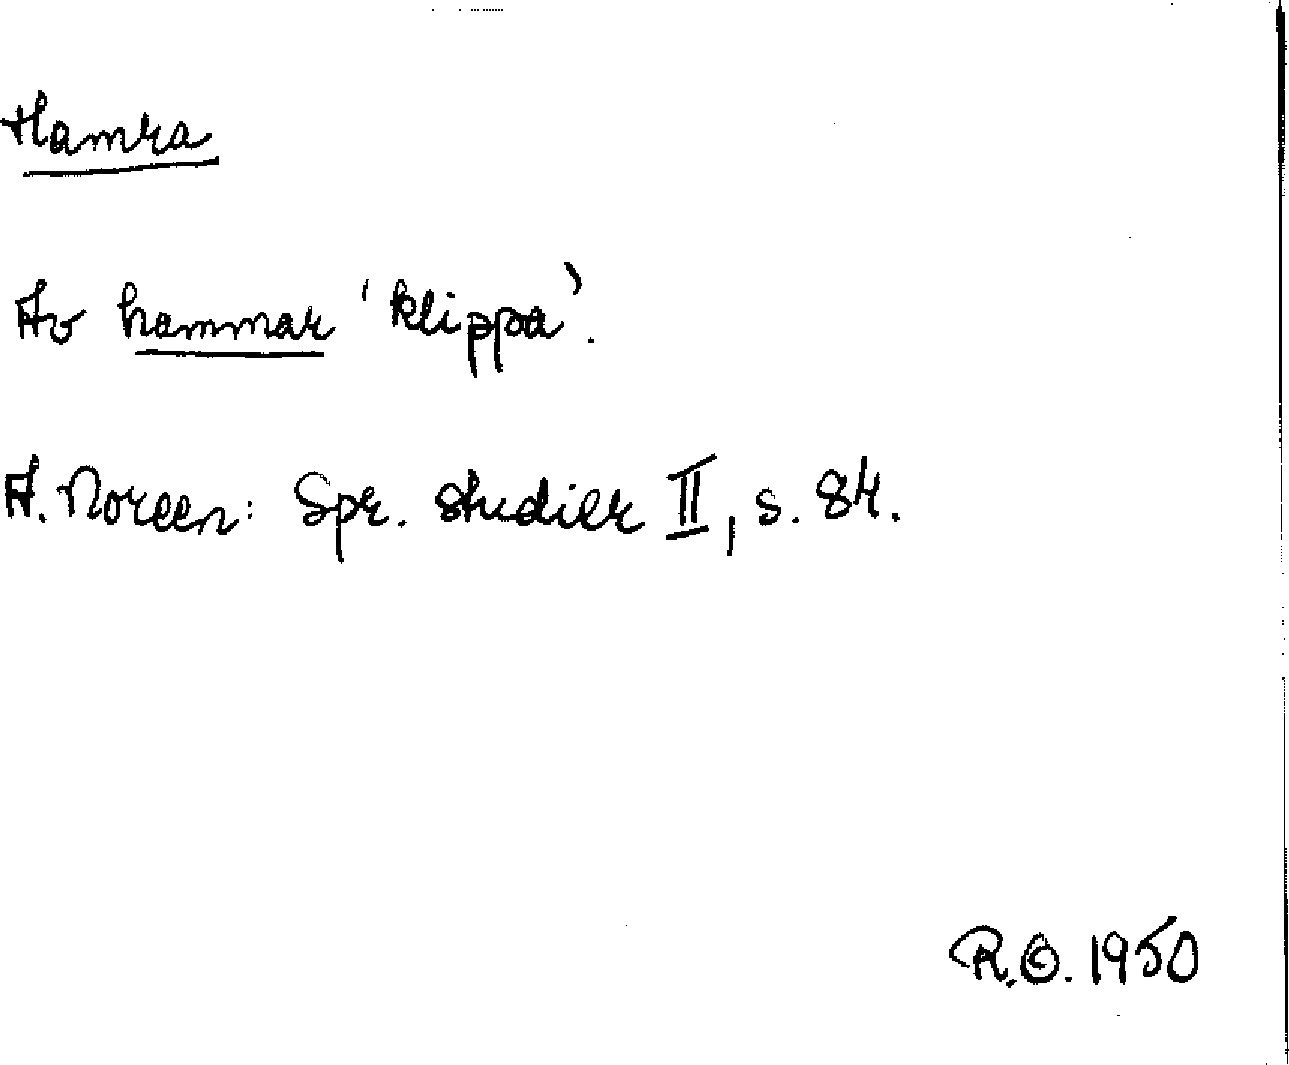 Hamra
Av hammar 'klippa'.
A. Noreen: Spr. studier II, s. 84.
R.O. 1950